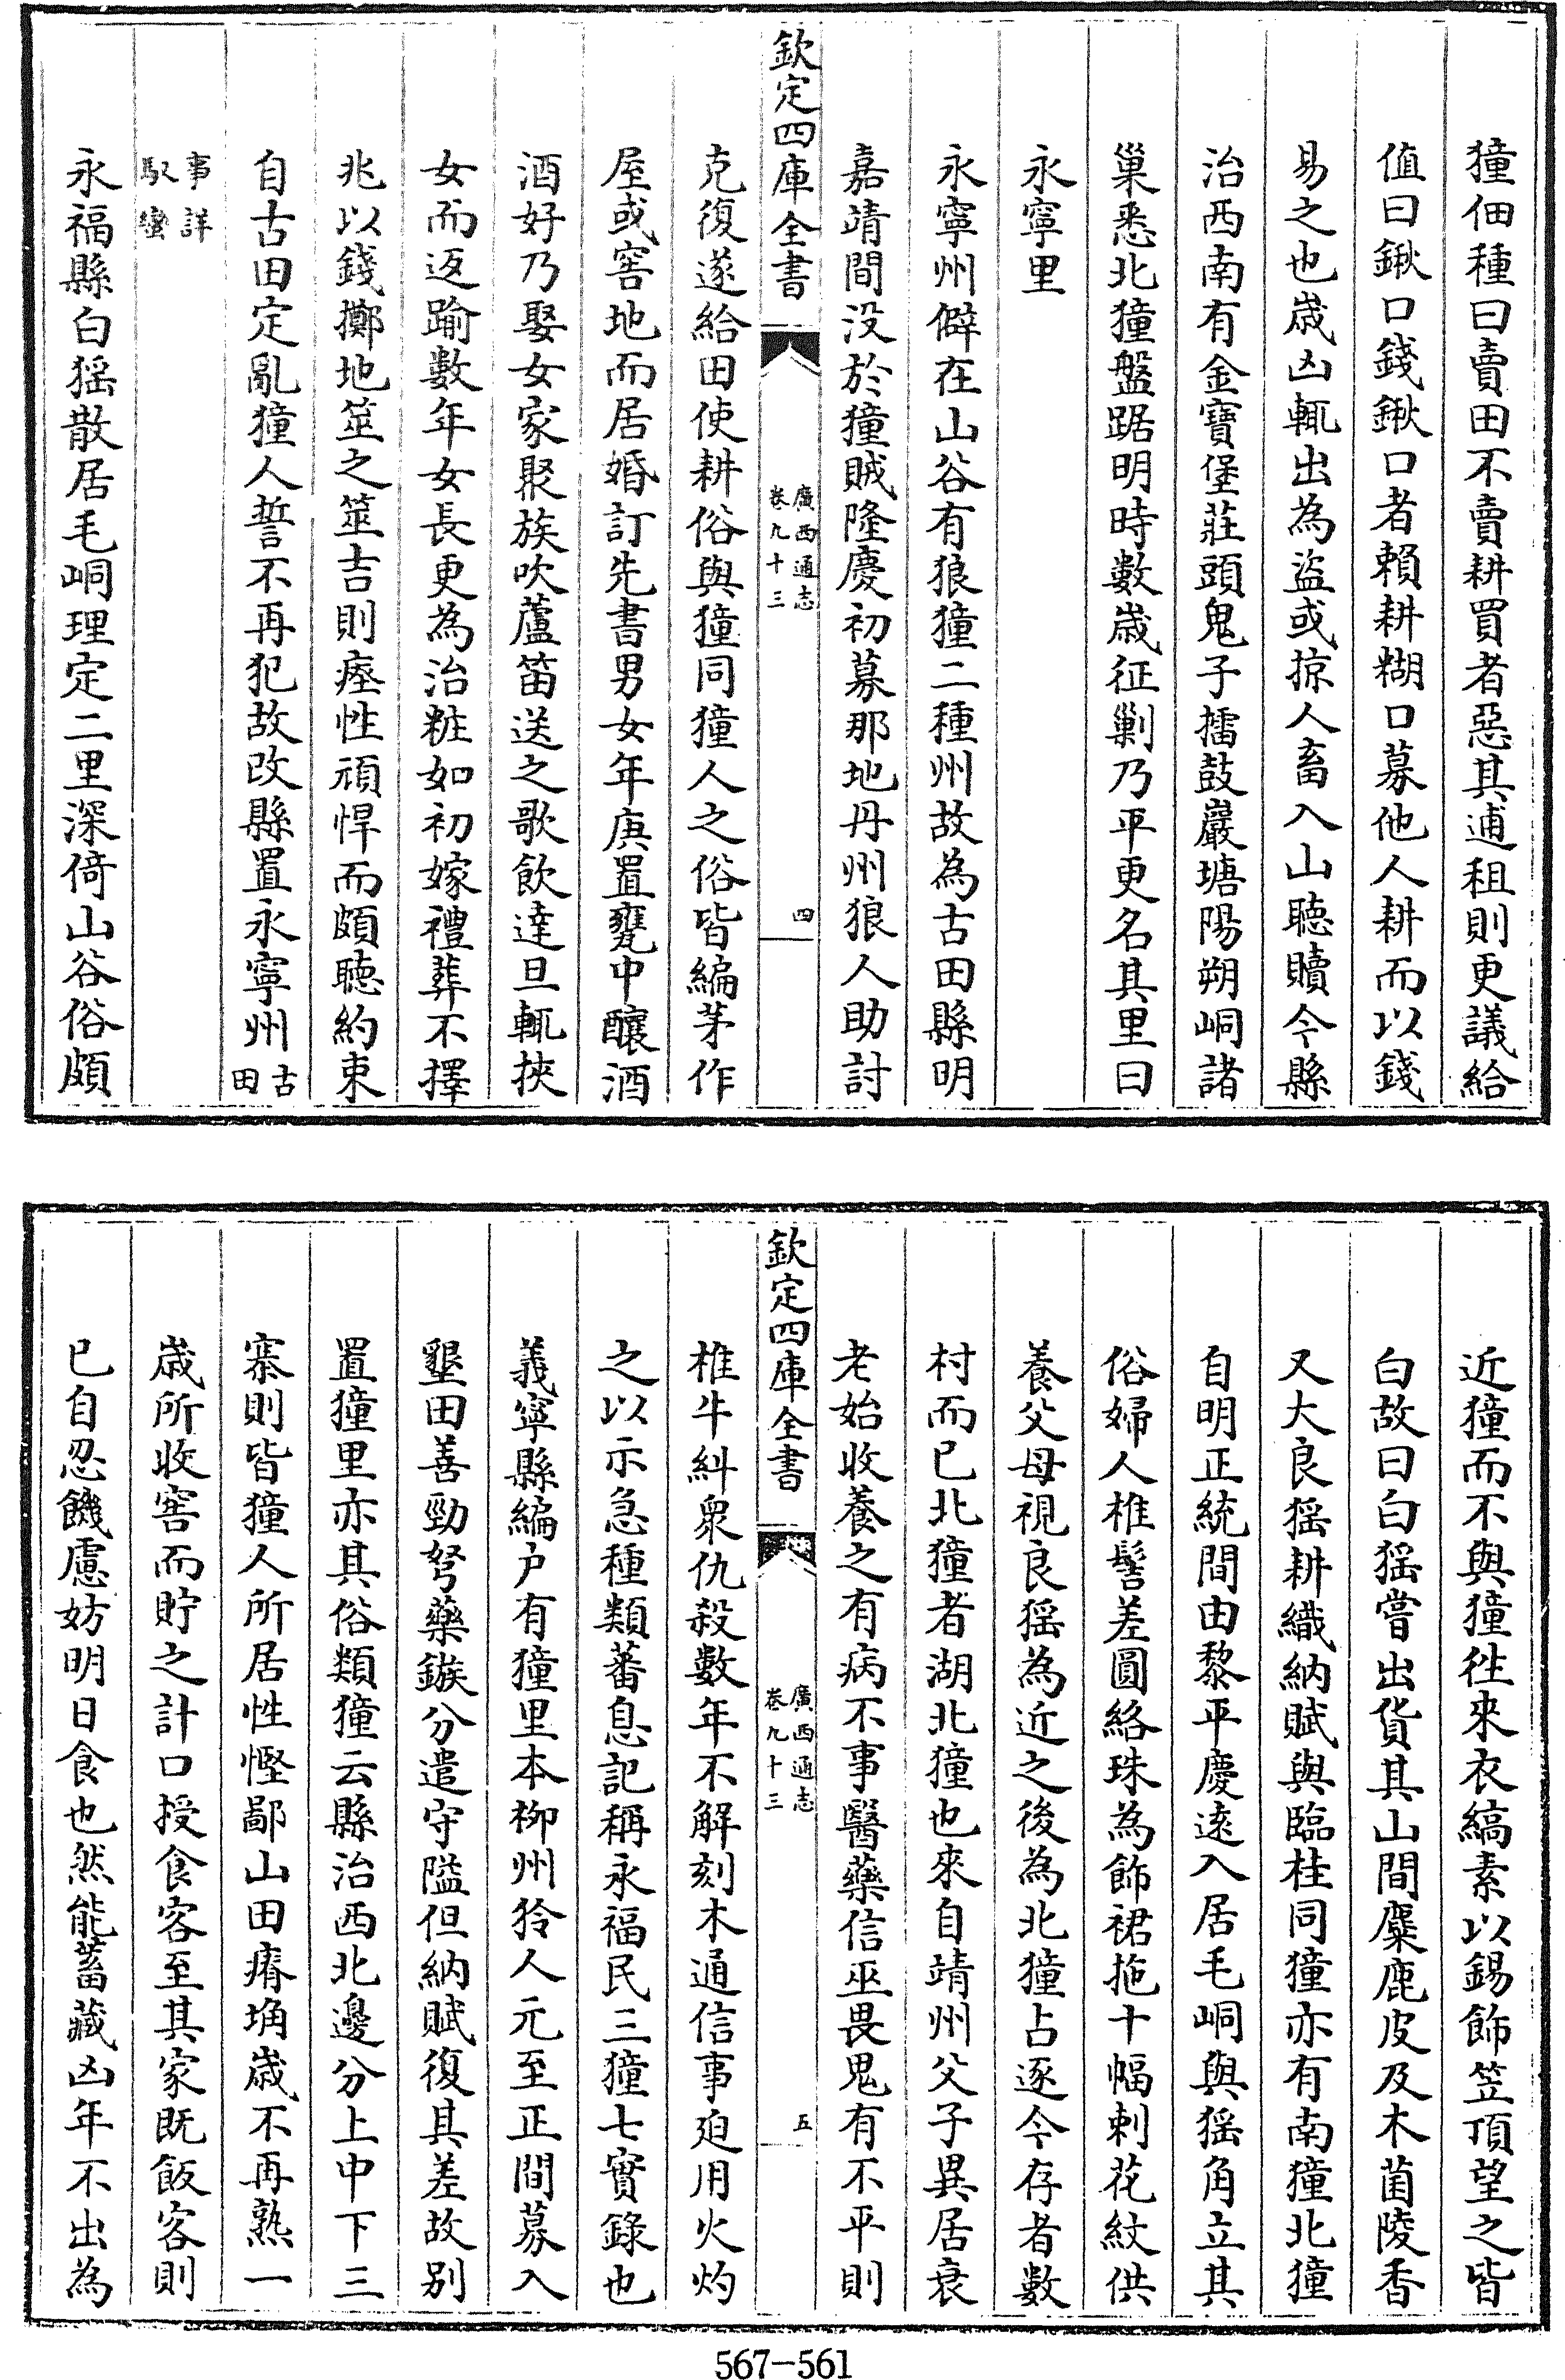 獞佃種曰賣田不賣耕買者惡其逋租則更議給
值曰鍬口錢鍬口者賴耕糊口募他人耕而以錢
易之也歳凶輒出為盜或掠人畜入山聽贖今縣
治西南有金寶堡莊頭鬼子擂鼓巖塘陽朔峒諸
巢悉北獞盤踞明時數歳征剿乃平更名其里曰
永寧里
永寧州僻在山谷有狼獞二種州故為古田縣明
嘉靖間没於獞賊隆慶初募那地丹州狼人助討
欽定四庫全書
廣西通志
卷九十三
四
克復遂給田使耕俗與獞同獞人之俗皆編茅作
屋或窖地而居婚訂先書男女年庚置甕中釀酒
酒好乃娶女家聚族吹蘆笛送之歌飲達旦輒挾
女而返踰數年女長更為治粧如初嫁禮葬不擇
兆以錢擲地筮之筮吉則瘞性頑悍而頗聽約束
自古田定亂獞人誓不再犯故改縣置永寧州古田
事詳馭蠻
永福縣白猺散居毛峒理定二里深倚山谷俗頗
近獞而不與獞徃來衣縞素以錫飾笠頂望之皆
白故曰白猺嘗出貨其山間麋鹿皮及木菌陵香
又大良猺耕織納賦與臨桂同獞亦有南獞北獞
自明正統間由黎平慶逺入居毛峒與猺角立其
俗婦人椎髻差圓絡珠為飾裙拖十幅刺花紋供
養父母視良猺為近之後為北獞占逐今存者數
村而已北獞者湖北獞也來自靖州父子異居衰
老始收養之有病不事醫藥信巫畏鬼有不平則
欽定四庫全書
廣西通志
卷九十三
五
椎牛糾衆仇殺數年不解刻木通信事廹用火灼
之以示急種類蕃息記稱永福民三獞七實錄也
義寧縣編户有獞里本柳州狑人元至正間募入
墾田善勁弩藥鏃分遣守隘但納賦復其差故别
置獞里亦其俗類獞云縣治西北邊分上中下三
寨則皆獞人所居性慳鄙山田瘠埆歳不再熟一
歳所收窖而貯之計口授食客至其家既飯客則
已自忍饑慮妨明日食也然能蓄藏凶年不出為
567-561